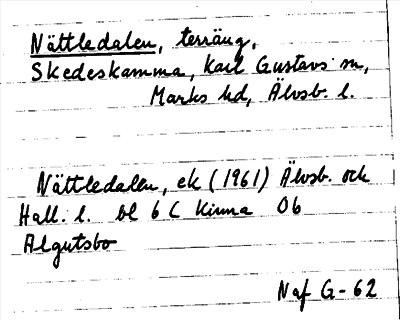 Nättledalen, terräng,
Skedeskamma, Karl Gustavs sn,
Marks hd, Älvsb. l.
Nättledalen, ek (1961) Älvsb. och
Hall. l. bl 6 C Kinna Ob
Algutsbo
Naf G-62